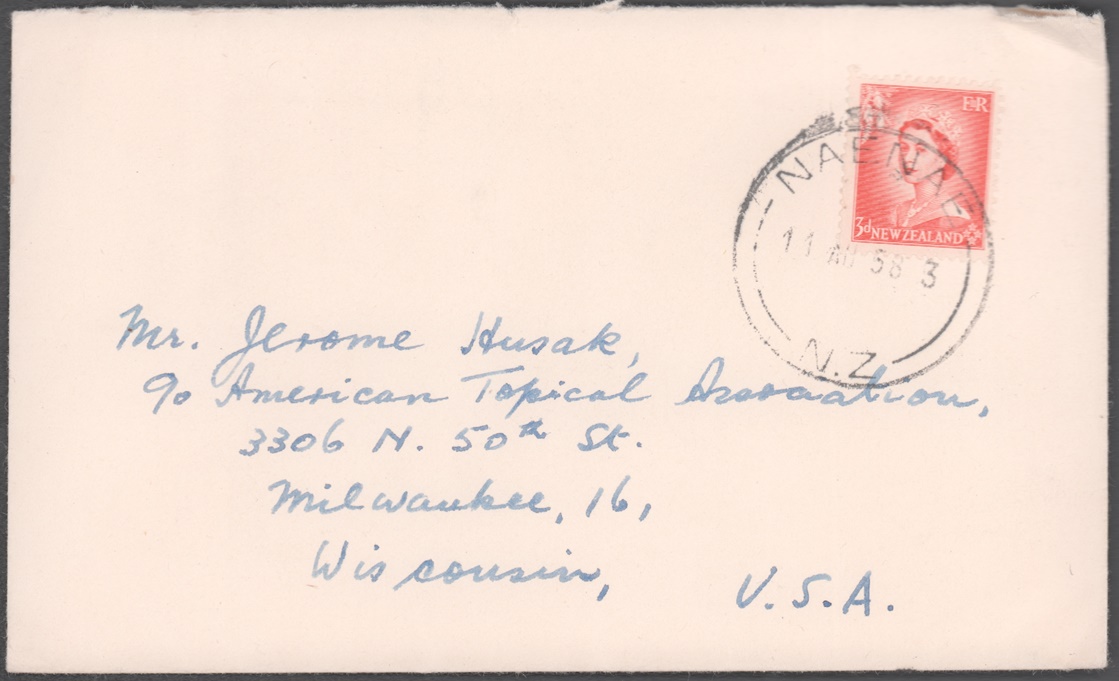 ER
3d NEW ZEALAND
NAENAE
11 AU 58 3
N.Z
Mr. Jerome Husak,
c/o American Topical Association,
3306 N. 50th St.
Milwaukee, 16,
Wisconsin,
U.S.A.